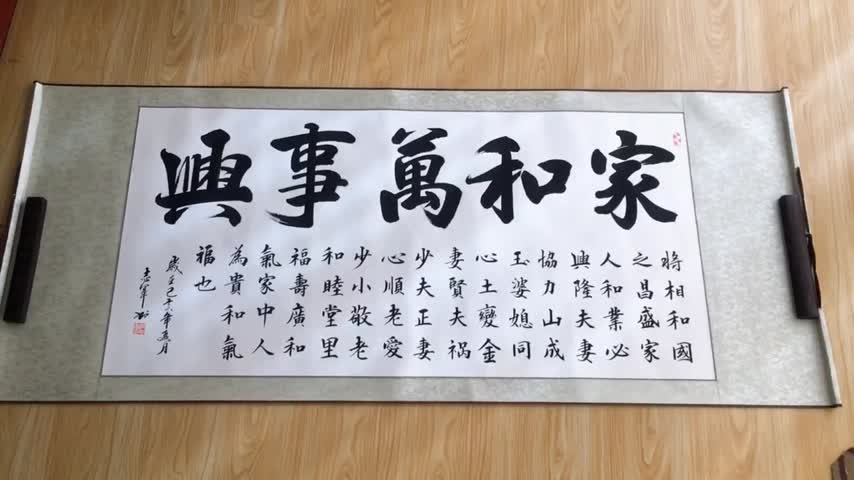 家和萬事興
將相和國
之昌盛家
人和業必
興隆夫妻
協力山成
玉婆媳同
心土變金
妻賢夫祸
少夫正妻
心順老愛
少小敬老
和睦堂里
福壽廣和
氣家中人
為貴和氣
福也
八年五月